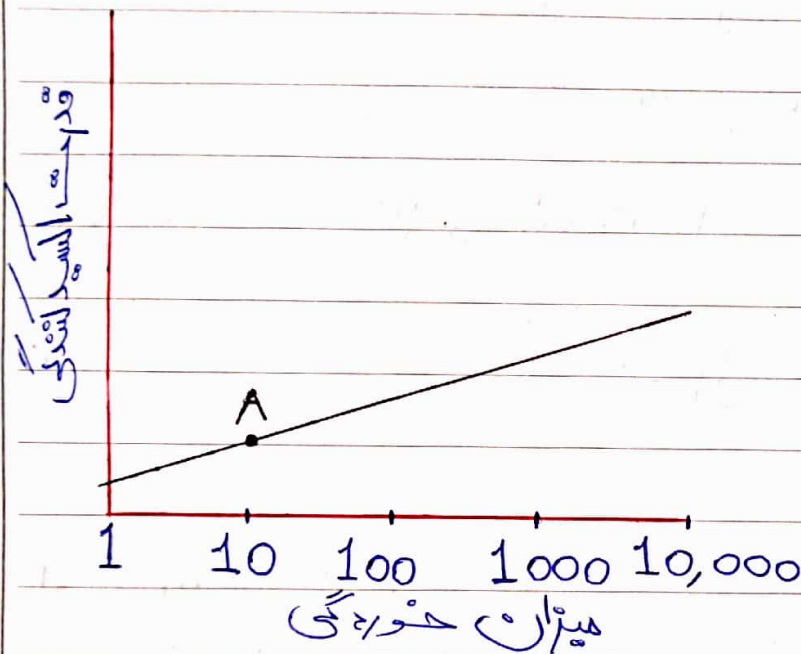 قدرت اکسیدکنندگی
A
1 10 100 1000 10,000
میزان خوردگی